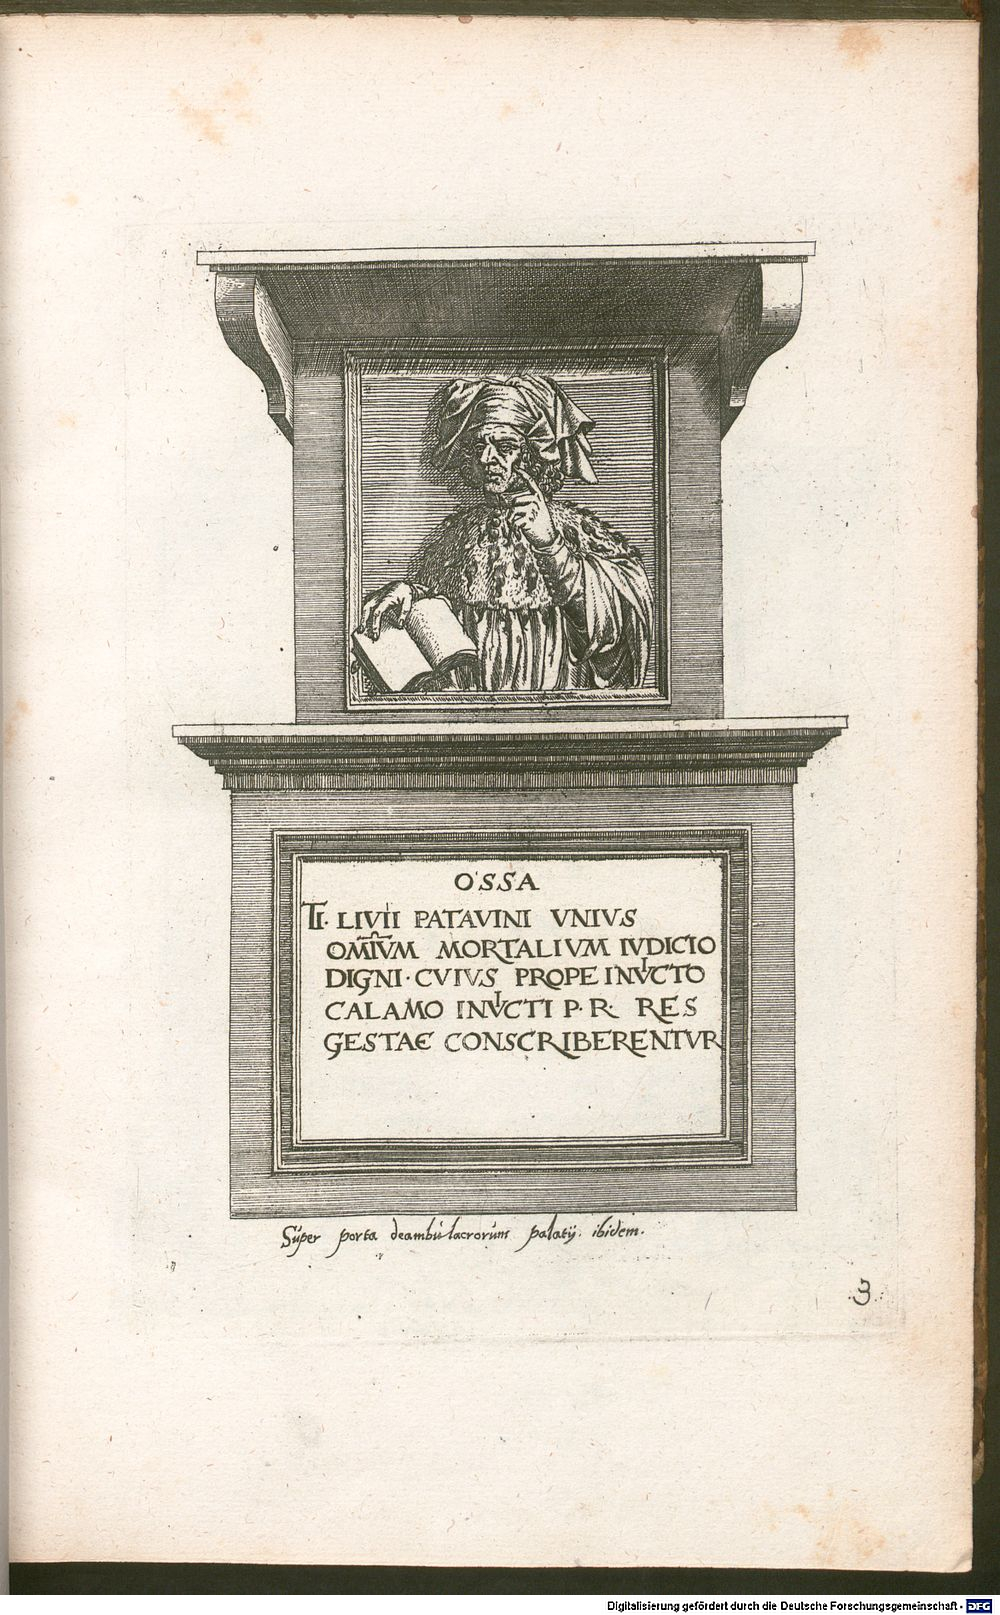 OSSA
TI. LIVII PATAVINI VNIVS
OMIVM MORTALIVM IVDICIO
DIGNI · CVIVS PROPE INVICTO
CALAMO INVICTI P. R. RES
GESTAE CONSCRIBERENTVR
Super porta deambulacrorum palatij. ibidem.
3.
Digitalisierung gefördert durch die Deutsche Forschungsgemeinschaft - DFG